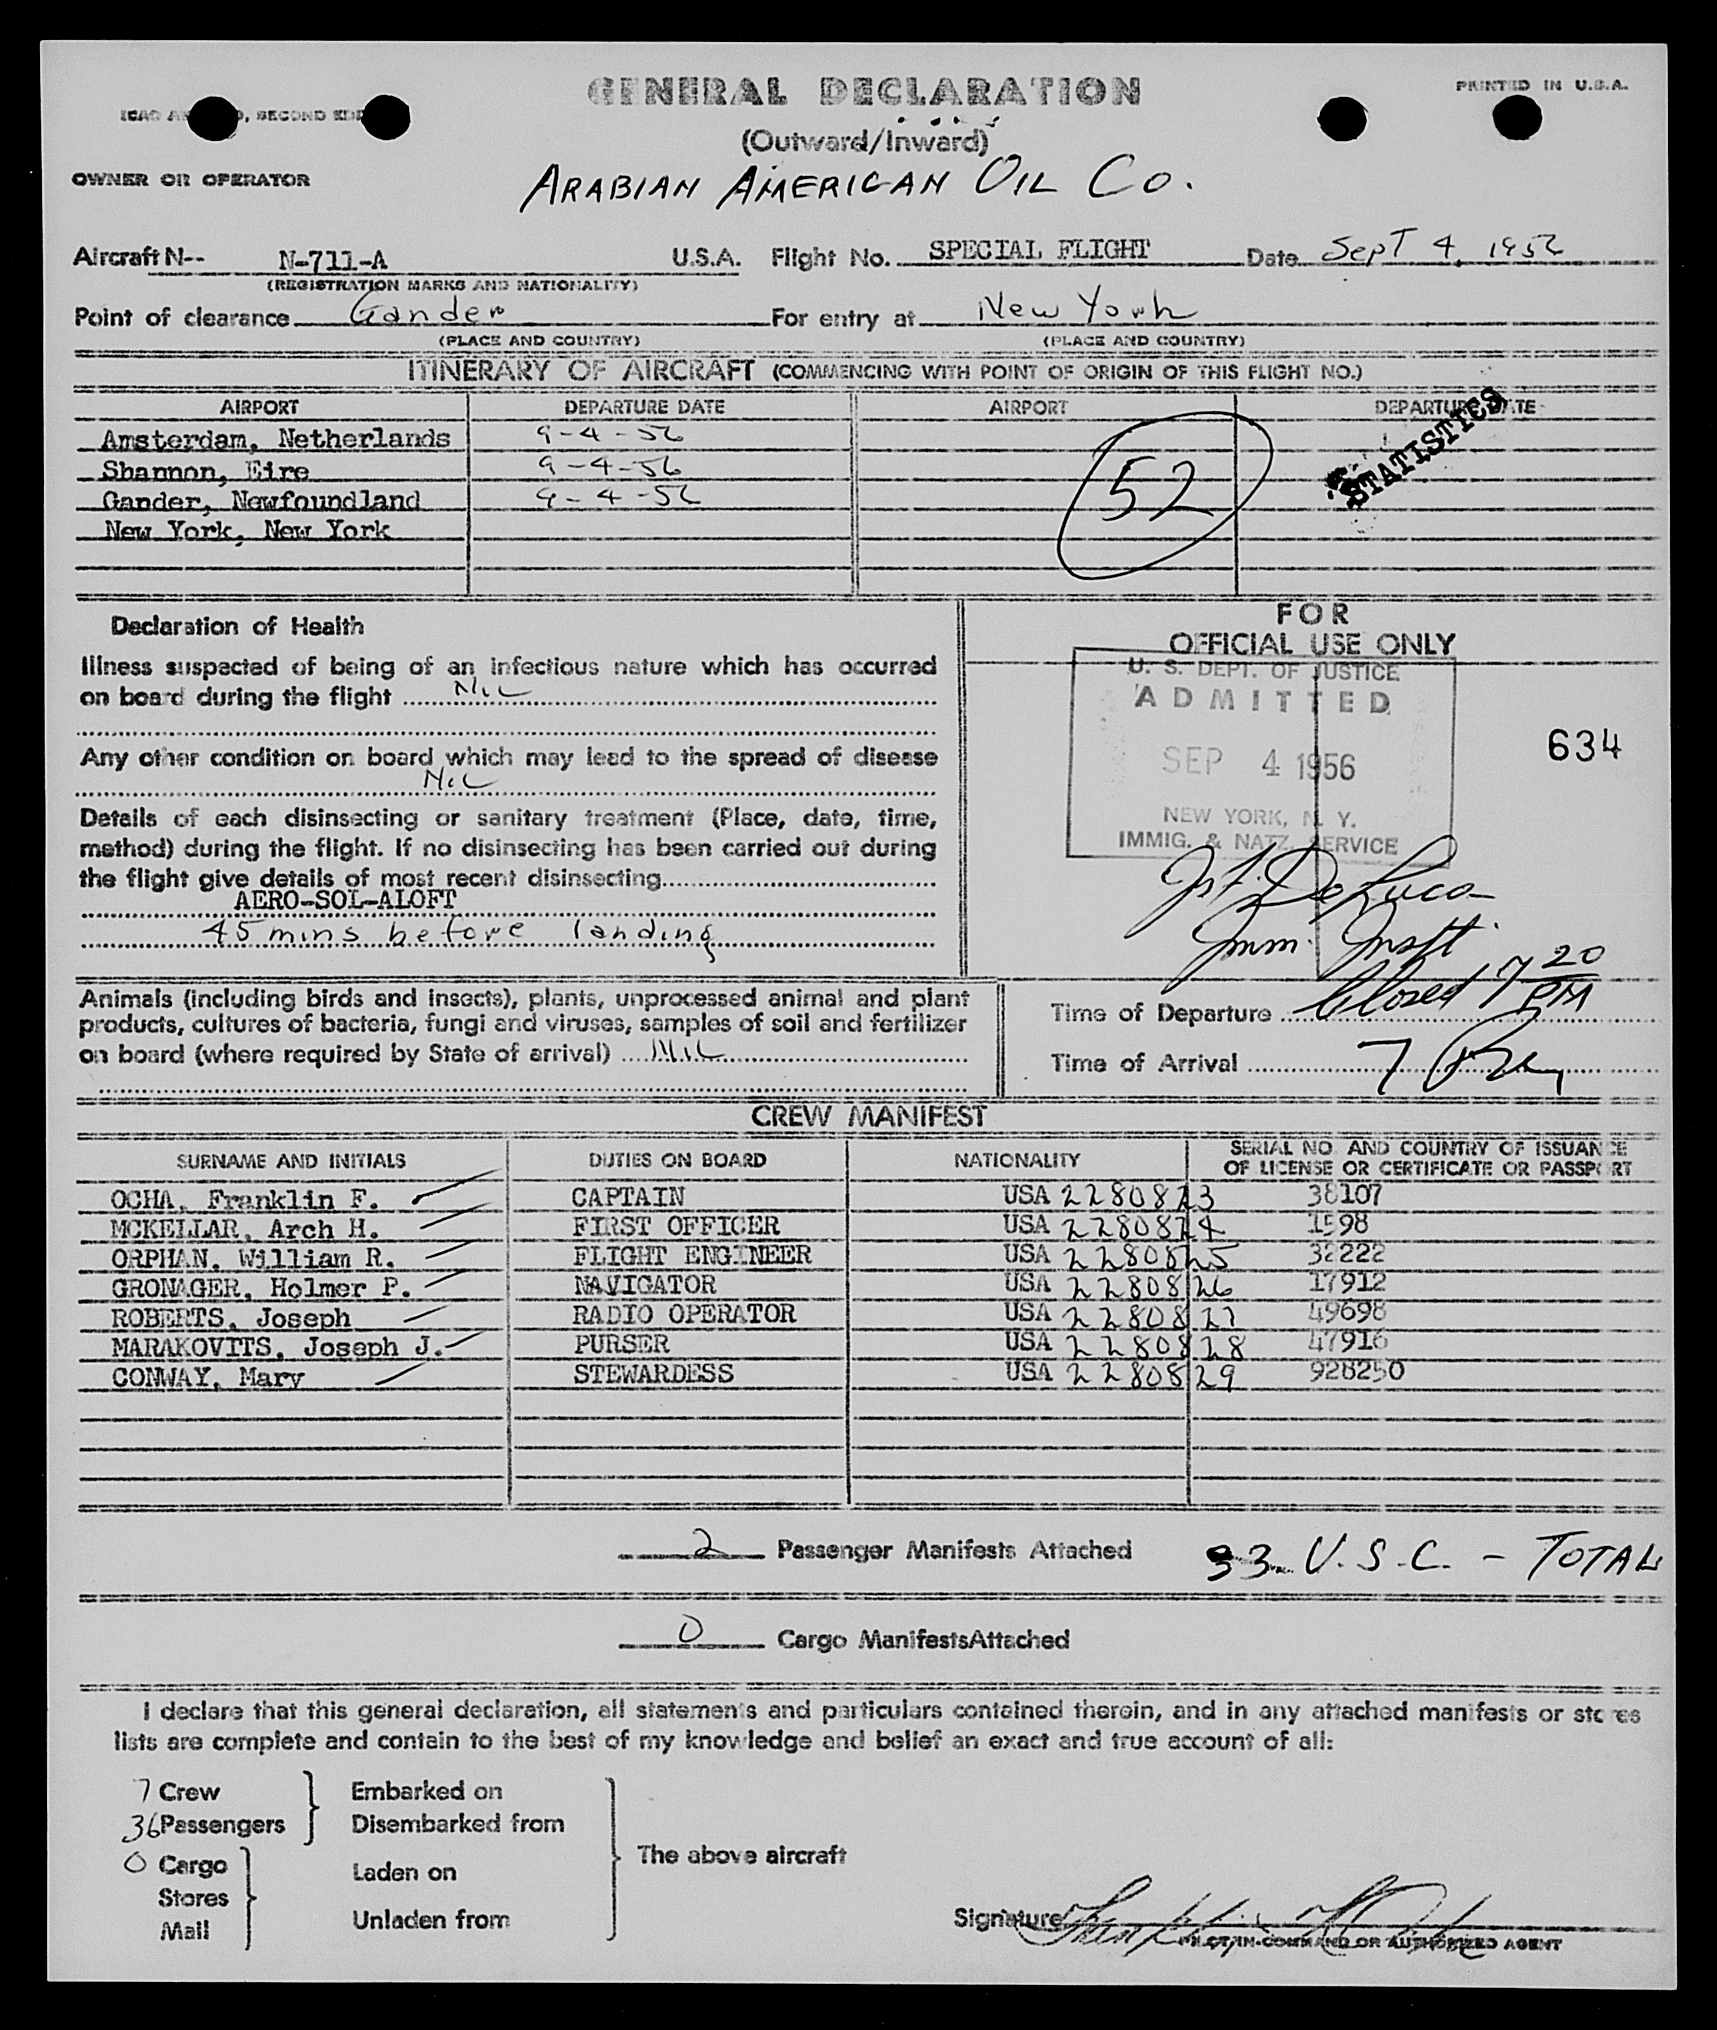 GENERAL DECLARATION
PRINTED IN U.S.A.
SECOND
(Outward/Inward)
OWNER OR OPERATOR
ARABIAN AMERICAN OIL CO.
Aircraft N-- N-711-A U.S.A. Flight No. SPECIAL FLIGHT Date Sept 4, 1956
(REGISTRATION MARKS AND NATIONALITY)
Point of clearance Gander For entry at New York
(PLACE AND COUNTRY) (PLACE AND COUNTRY)
ITINERARY OF AIRCRAFT (COMMENCING WITH POINT OF ORIGIN OF THIS FLIGHT NO.)
AIRPORT DEPARTURE DATE AIRPORT DEPARTURE DATE
STATISTICS
Amsterdam, Netherlands 9-4-56
Shannon, Eire 9-4-56
52
Gander, Newfoundland 9-4-56
New York, New York
Declaration of Health
Illness suspected of being of an infectious nature which has occurred
on board during the flight Nil
Any other condition on board which may lead to the spread of disease
Nil
Details of each disinsecting or sanitary treatment (Place, date, time,
method) during the flight. If no disinsecting has been carried out during
the flight give details of most recent disinsecting
AERO-SOL-ALOFT
45 mins before landing
FOR
OFFICIAL USE ONLY
U. S. DEPT. OF JUSTICE
ADMITTED
634
SEP 4 1956
NEW YORK, N. Y.
IMMIG. & NATZ. SERVICE
De Luca
Imm. Inspt.
Animals (including birds and insects), plants, unprocessed animal and plant
products, cultures of bacteria, fungi and viruses, samples of soil and fertilizer
on board (where required by State of arrival) Nil
Time of Departure Closed 7 20 PM
Time of Arrival 7 Pm
CREW MANIFEST
SURNAME AND INITIALS DUTIES ON BOARD NATIONALITY SERIAL NO. AND COUNTRY OF ISSUANCE
OF LICENSE OR CERTIFICATE OR PASSPORT
OCHA, Franklin F. CAPTAIN USA 2280823 38107
MCKELLAR, Arch H. FIRST OFFICER USA 2280824 1598
ORPHAN, William R. FLIGHT ENGINEER USA 2280825 32222
GRONAGER, Holmer P. NAVIGATOR USA 2280826 17912
ROBERTS, Joseph RADIO OPERATOR USA 2280827 49698
MARAKOVITS, Joseph J. PURSER USA 2280828 47916
CONWAY, Mary STEWARDESS USA 2280829 928250
2 Passenger Manifests Attached 33 U.S.C. - TOTAL
0 Cargo Manifests Attached
I declare that this general declaration, all statements and particulars contained therein, and in any attached manifests or stores
lists are complete and contain to the best of my knowledge and belief an exact and true account of all:
7 Crew Embarked on
36 Passengers Disembarked from
The above aircraft
0 Cargo Laden on
Stores
Mail Unladen from
Signature
PILOT-IN-COMMAND OR AUTHORIZED AGENT